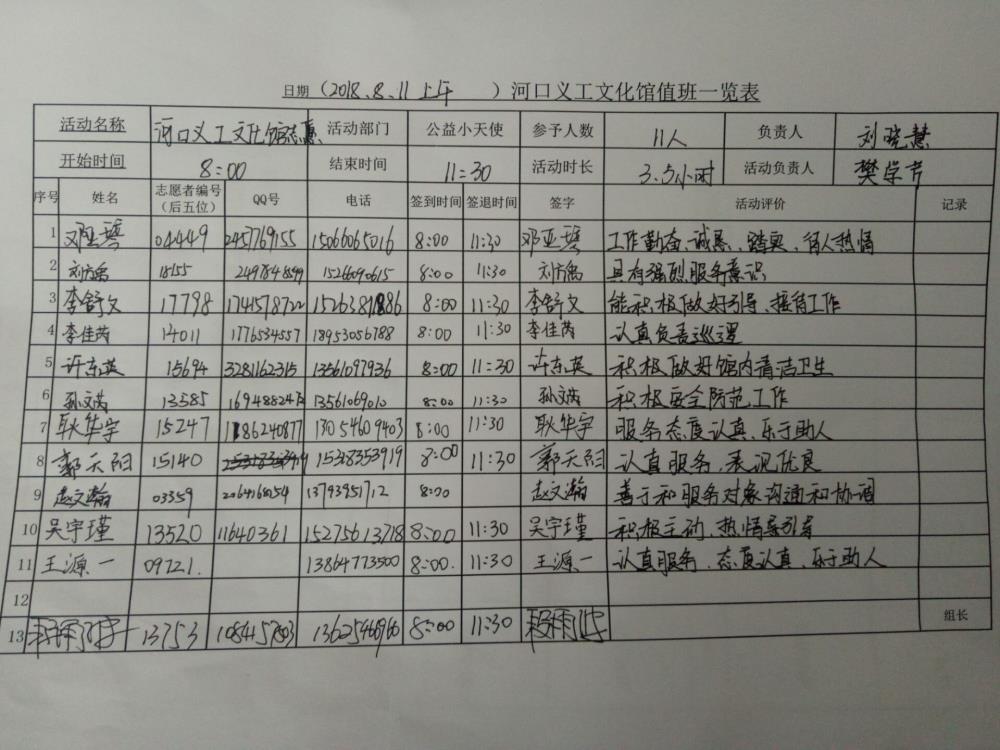 日期（2018.8.11上午 ）河口义工文化馆值班一览表
活动名称 河口义工文化馆志愿 活动部门 公益小天使 参予人数 11人 负责人 刘晓慧
开始时间 8:00 结束时间 11:30 活动时长 3.5小时 活动负责人 樊学芹
序号 姓名 志愿者编号（后五位） QQ号 电话 签到时间 签退时间 签字 活动评价 记录
1 邓亚琴 04449 2457769155 15066065016 8:00 11:30 邓亚琴 工作勤奋、诚恳、踏实、待人热情
2 刘方禹 18155 15266090615 8:00 11:30 刘方禹 具有强烈服务意识
3 李舒文 17798 1741578722 8:00 11:30 李舒文 能积极做好引导、接待工作
4 李佳芮 14011 1776534557 18953056788 8:00 11:30 李佳芮 认真负责巡逻
5 许东英 15694 3281162315 13561097936 8:00 11:30 许东英 积极做好馆内清洁卫生
6 孙文芮 13585 13561069010 8:00 11:30 孙文芮 积极安全防范工作
7 耿华宇 15247 13054609403 8:00 11:30 耿华宇 服务态度认真、乐于助人
8 郭天阳 15140 1538353919 8:00 11:30 郭天阳 认真服务，表现优良
9 赵文瀚 03359 2064168054 13793951712 8:00 赵文瀚 善于和服务对象沟通和协调
10 吴宇瑾 13520 11640361 15275613718 8:00 11:30 吴宇瑾 积极主动，热情导引导
11 王源一 09721. 13864773500 8:00. 11:30 王源一 认真服务、态度认真、乐于助人
12
13 13753 13625466960 8:00 11:30 组长